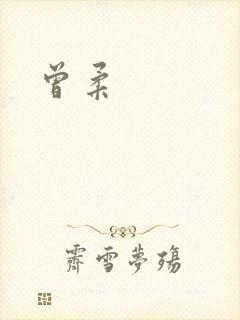 曾柔
霽雪夢殤